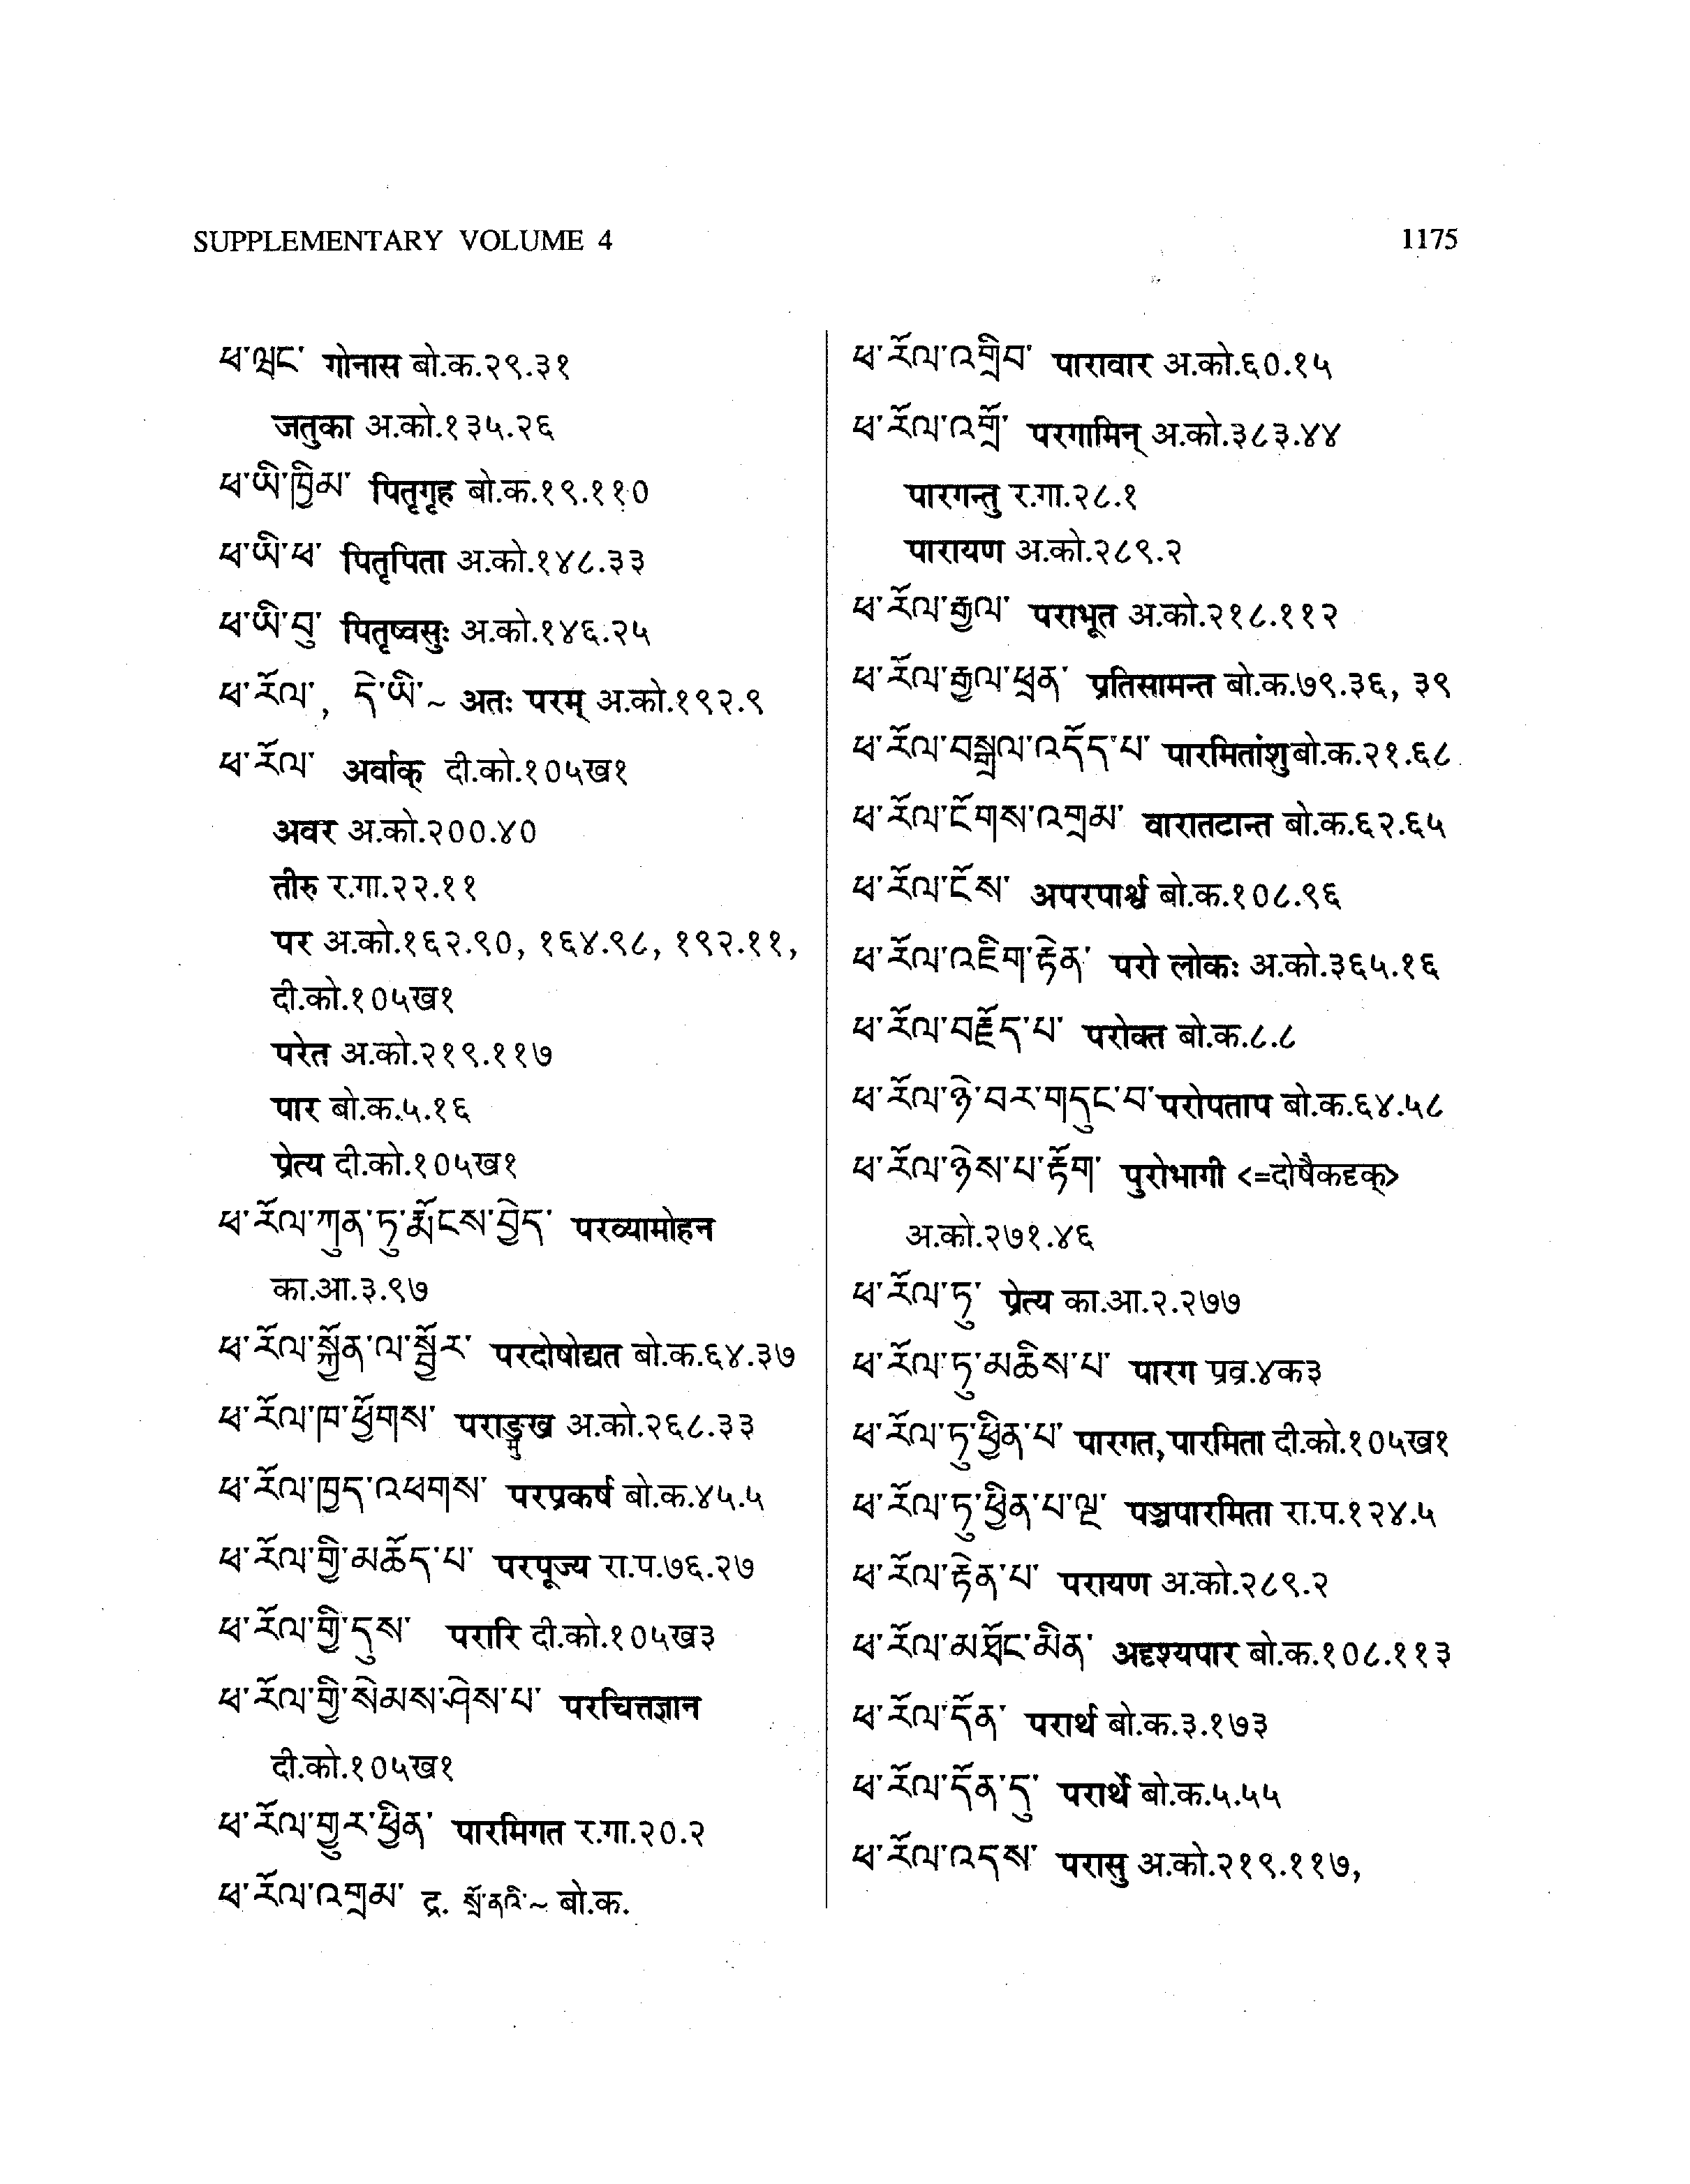 SUPPLEMENTARY VOLUME 4
1175
ཕ་ལྦང་ गोनास बो.क.२९.३१
जतुका अ.को.१३५.२६
ཕ་ཡི་ཁྱིམ་ पितृगृह बो.क.१९.११०
ཕ་ཡི་ཕ་ पितृपिता अ.को.१४८.३३
ཕ་ཡི་བུ་ पितृष्वसुः अ.को.१४६.२५
ཕ་རོལ་, དེ་ཡི་~ अतः परम् अ.को.१९२.९
ཕ་རོལ་ अर्वाक् दी.को.१०५ख१
अवर अ.को.२००.४०
तीरु र.गा.२२.११
पर अ.को.१६२.९०, १६४.९८, १९२.११,
दी.को.१०५ख१
परेत अ.को.२१९.११७
पार बो.क.५.१६
प्रेत्य दी.को.१०५ख१
ཕ་རོལ་ཀུན་ཏུ་རྨོངས་བྱེད་ परव्यामोहन
का.आ.३.९७
ཕ་རོལ་སྐྱོན་ལ་སྦྱོར་ परदोषोद्यत बो.क.६४.३७
ཕ་རོལ་ཁ་ཕྱོགས་ पराङ्मुख अ.को.२६८.३३
ཕ་རོལ་ཁྱད་འཕགས་ परप्रकर्ष बो.क.४५.५
ཕ་རོལ་གྱི་མཆོད་པ་ परपूज्य रा.प.७६.२७
ཕ་རོལ་གྱི་དུས་ परारि दी.को.१०५ख३
ཕ་རོལ་གྱི་སེམས་ཤེས་པ་ परचित्तज्ञान
दी.को.१०५ख१
ཕ་རོལ་གྱུར་ཕྱིན་ पारमिगत र.गा.२०.२
ཕ་རོལ་འགྲམ་ द्र. སྲོ་ནའི་~ बो.क.
ཕ་རོལ་འགྲིབ་ पारावार अ.को.६०.१५
ཕ་རོལ་འགྲོ་ परगामिन् अ.को.३८३.४४
पारगन्तु र.गा.२८.१
पारायण अ.को.२८९.२
ཕ་རོལ་རྒྱལ་ पराभूत अ.को.२१८.११२
ཕ་རོལ་རྒྱལ་ཕྲན་ प्रतिसामन्त बो.क.७९.३६, ३९
ཕ་རོལ་བསྒྲལ་འདོད་པ་ पारमितांशु बो.क.२१.६८
ཕ་རོལ་ངོགས་འགྲམ་ वारातटान्त बो.क.६२.६५
ཕ་རོལ་ངོས་ अपरपार्श्व बो.क.१०८.९६
ཕ་རོལ་འཇིག་རྟེན་ परो लोकः अ.को.३६५.१६
ཕ་རོལ་བརྗོད་པ་ परोक्त बो.क.८.८
ཕ་རོལ་ཉེ་བར་གདུང་བ་ परोपताप बो.क.६४.५८
ཕ་རོལ་ཉེས་པ་རྟོག་ पुरोभागी <=दोषैकदृक्>
अ.को.२७१.४६
ཕ་རོལ་ཏུ་ प्रेत्य का.आ.२.२७७
ཕ་རོལ་ཏུ་མཆིས་པ་ पारग प्रव्र.४क३
ཕ་རོལ་ཏུ་ཕྱིན་པ་ पारगत, पारमिता दी.को.१०५ख१
ཕ་རོལ་ཏུ་ཕྱིན་པ་ལྔ་ पञ्चपारमिता रा.प.१२४.५
ཕ་རོལ་རྟེན་པ་ परायण अ.को.२८९.२
ཕ་རོལ་མཐོང་མིན་ अदृश्यपार बो.क.१०८.११३
ཕ་རོལ་དོན་ परार्थ बो.क.३.१७३
ཕ་རོལ་དོན་དུ་ परार्थे बो.क.५.५५
ཕ་རོལ་འདས་ परासु अ.को.२१९.११७,